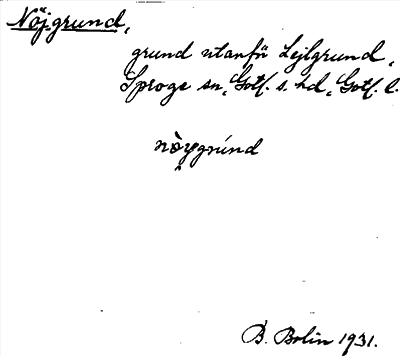 Nöjgrund,
grund utanför Lejlgrund,
Sproge sn, Gotl. s. hd, Gotl. l.
nòygrúnd
B. Bolin 1931.